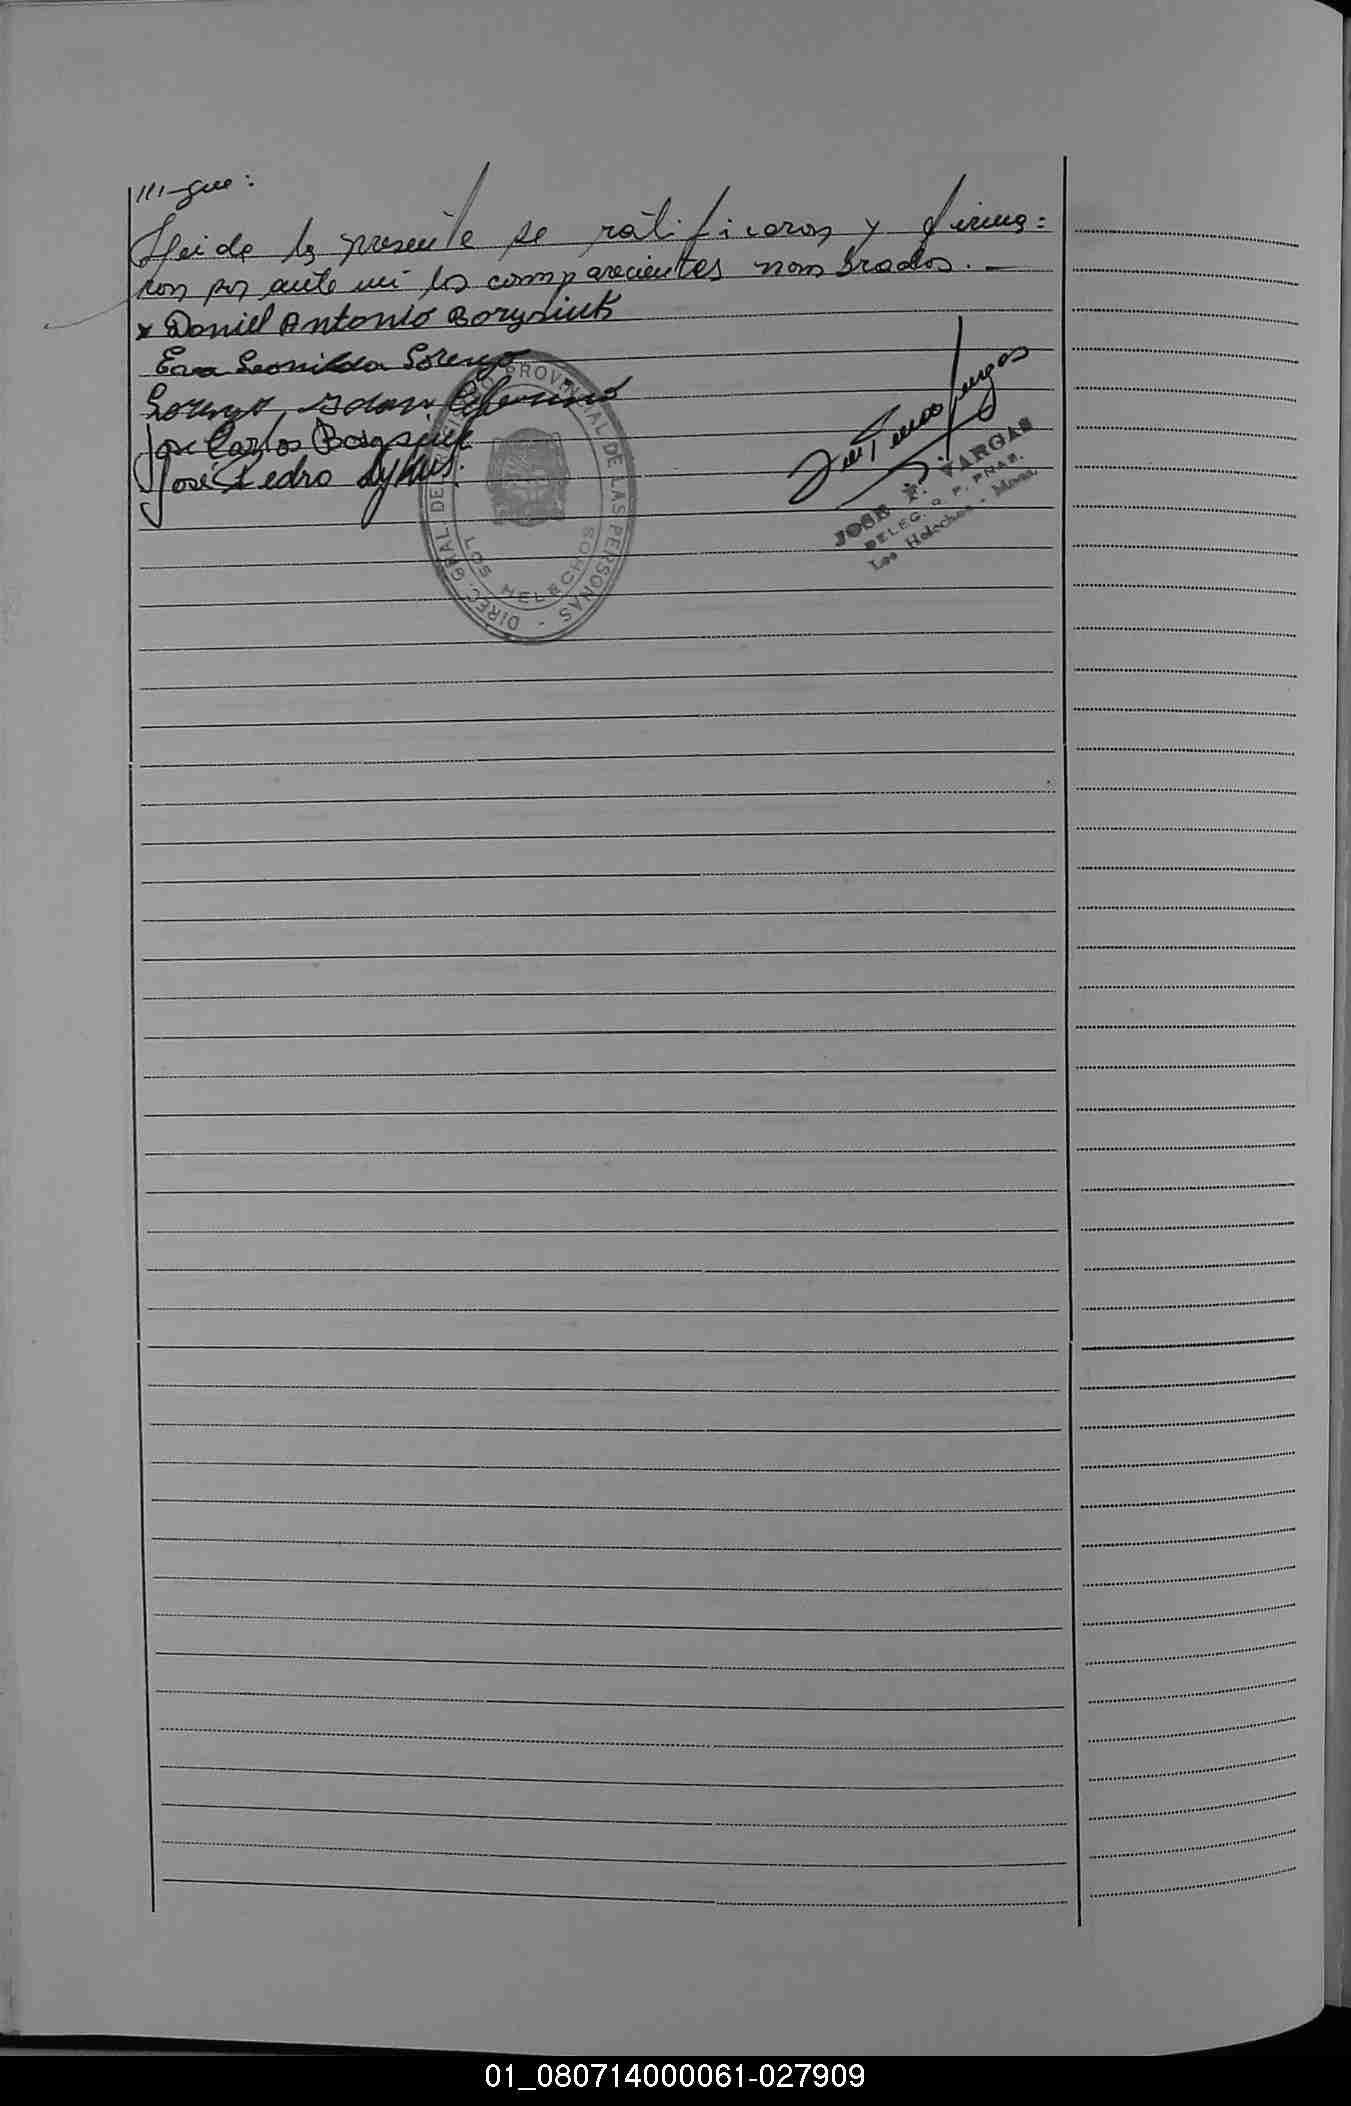 ///-gue:
Leida la presente se ratificaron y firma=
ron por ante mi los comparecientes nombrados. —
x Daniel Antonio Borysiuk
Eva Leonilda Lorenzo
Lorenzo, Adan
Jose Carlos Borysiuk
José Pedro Dykus.
DIREC. GRAL. DE REGISTRO PROVINCIAL DE LAS PERSONAS -
LOS HELECHOS
JOSE F. VARGAS
DELEG. R. P. PNAS.
Los Helechos - Mnes.
01_080714000061-027909